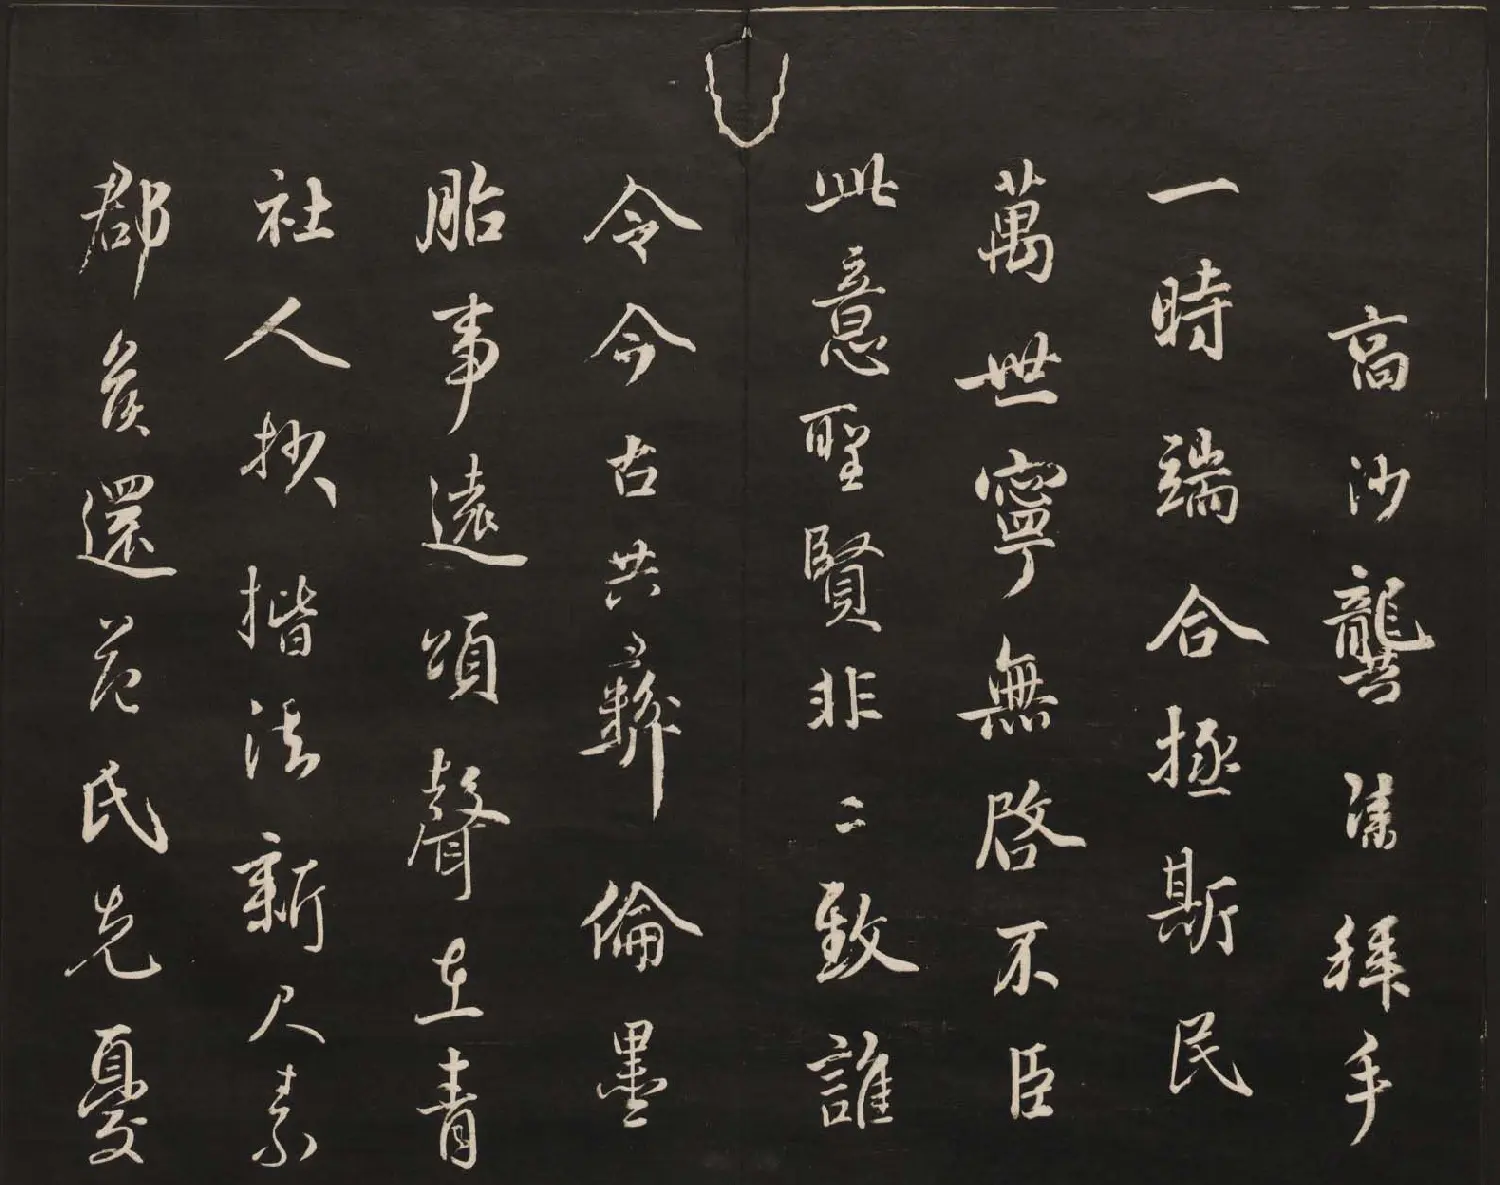 高沙龔璛拜手
一時端合拯斯民
萬世寧無啓不臣
此意聖賢非二致誰
令今古共彝倫墨
胎事遠頌聲在青
社人抄楷法新尺素
郡矦還范氏先憂